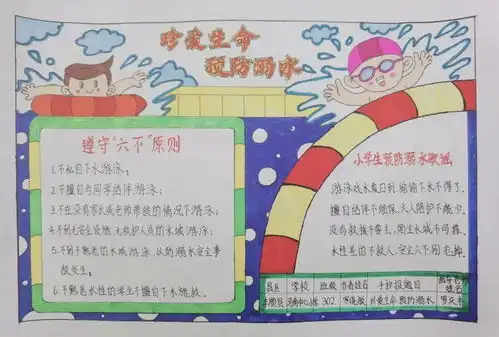 珍爱生命
预防溺水
遵守“六不”原则
1.不私自下水游泳；
2.不擅自与同学结伴游泳；
3.不在没有家长或老师带领的情况下游泳；
4.不到无安全设施、无救护人员的水域游泳；
5.不到不熟悉的水域游泳，以防溺水安全事
故发生；
6.不熟悉水性的学生不擅自下水施救。
小学生预防溺水歌谣
游泳戏水夏日到，偷偷下水不得了。
擅自结伴不能保，大人陪护不能少。
没有救援不要去，陌生水域不可靠。
水性差的不救人，安全六不同
县区 学校 班级 手抄报题目
302 珍爱生命 预防溺水